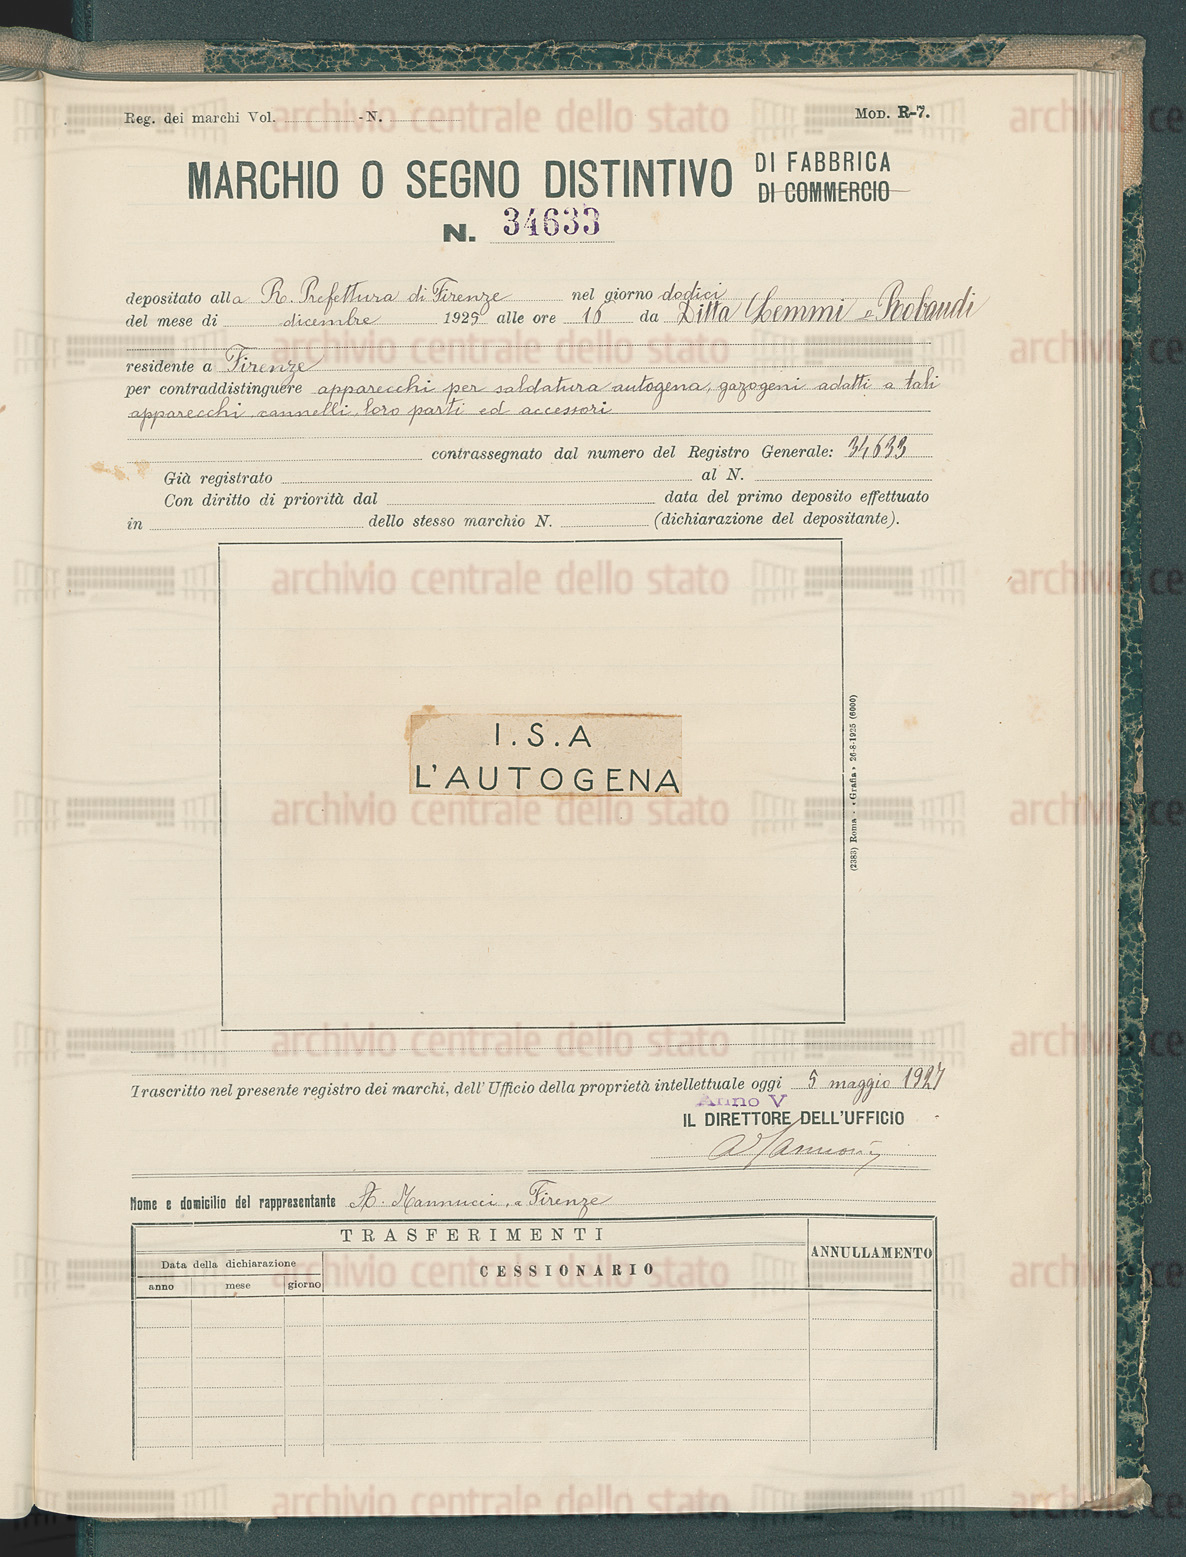 Reg. dei marchi Vol. - N.
MOD. R-7.
MARCHIO O SEGNO DISTINTIVO DI FABBRICA
DI COMMERCIO
N. 34633
depositato alla R. Prefettura di Firenze nel giorno dodici
del mese di dicembre 1925 alle ore 10 da Ditta Lemmi e Robaudi
residente a Firenze
per contraddistinguere apparecchi per saldatura autogena, gazogeni adatti a tali
apparecchi, cannelli, loro parti ed accessori
contrassegnato dal numero del Registro Generale: 34633
Già registrato al N.
Con diritto di priorità dal data del primo deposito effettuato
in dello stesso marchio N. (dichiarazione del depositante).
I.S.A
L'AUTOGENA
(2383) Roma - «Grafia» 26-8-1925 (6000)
Trascritto nel presente registro dei marchi, dell'Ufficio della proprietà intellettuale oggi 5 maggio 1927
Anno V
IL DIRETTORE DELL'UFFICIO
Nome e domicilio del rappresentante A. Mannucci, a Firenze
TRASFERIMENTI
ANNULLAMENTO
Data della dichiarazione
CESSIONARIO
anno mese giorno
archivio centrale dello stato